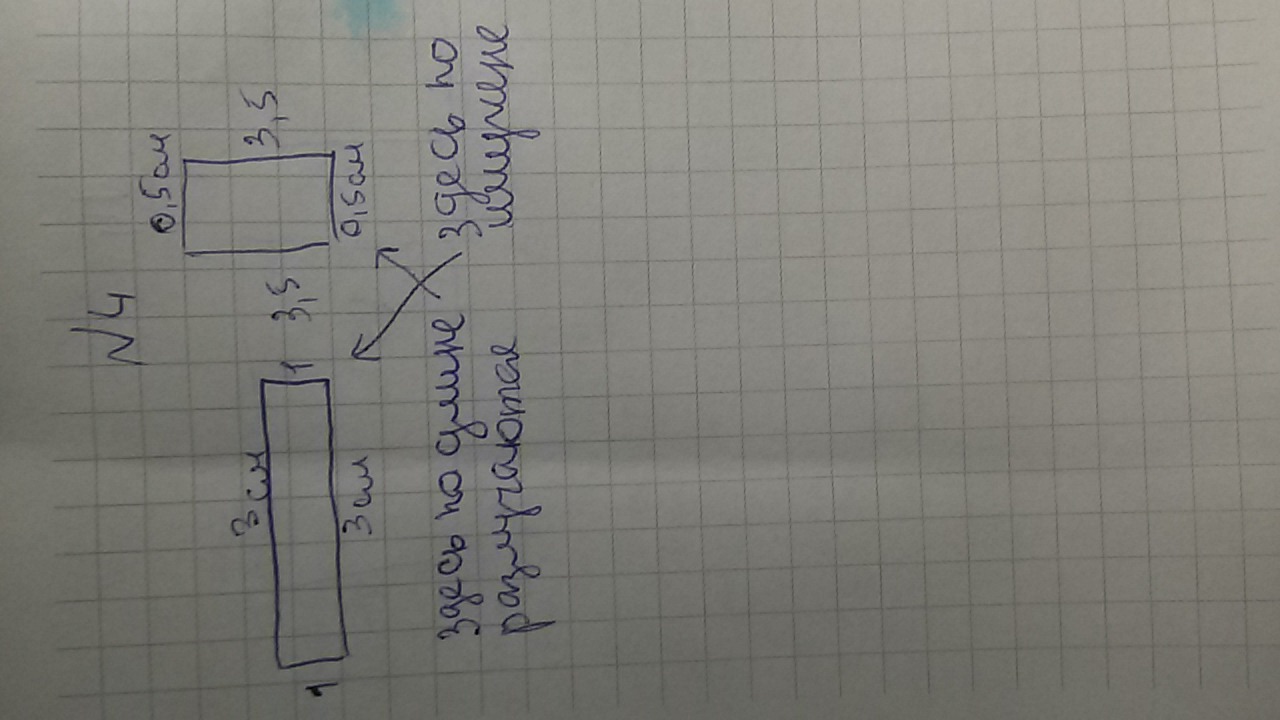 №4
3 см
1
1
3 см
0,5 см
3,5
3,5
0,5 см
здесь по длине
различаются
здесь по
ширине